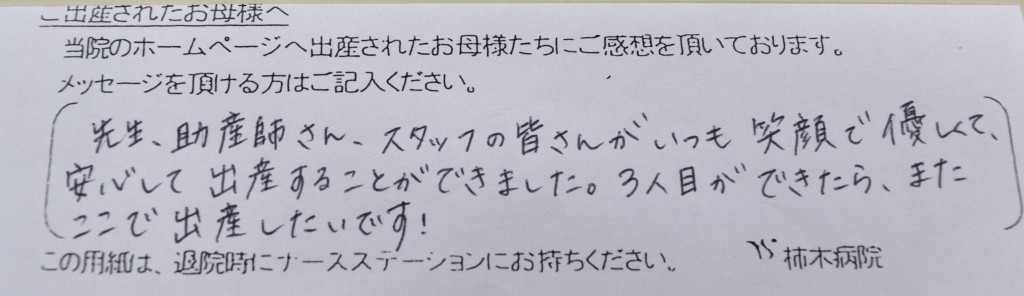 ご出産されたお母様へ
当院のホームページへ出産されたお母様たちにご感想を頂いております。
メッセージを頂ける方はご記入ください。
先生、助産師さん、スタッフの皆さんがいつも笑顔で優しくて、
安心して出産することができました。3人目ができたら、また
ここで出産したいです!
この用紙は、退院時にナースステーションにお持ちください。 柿木病院